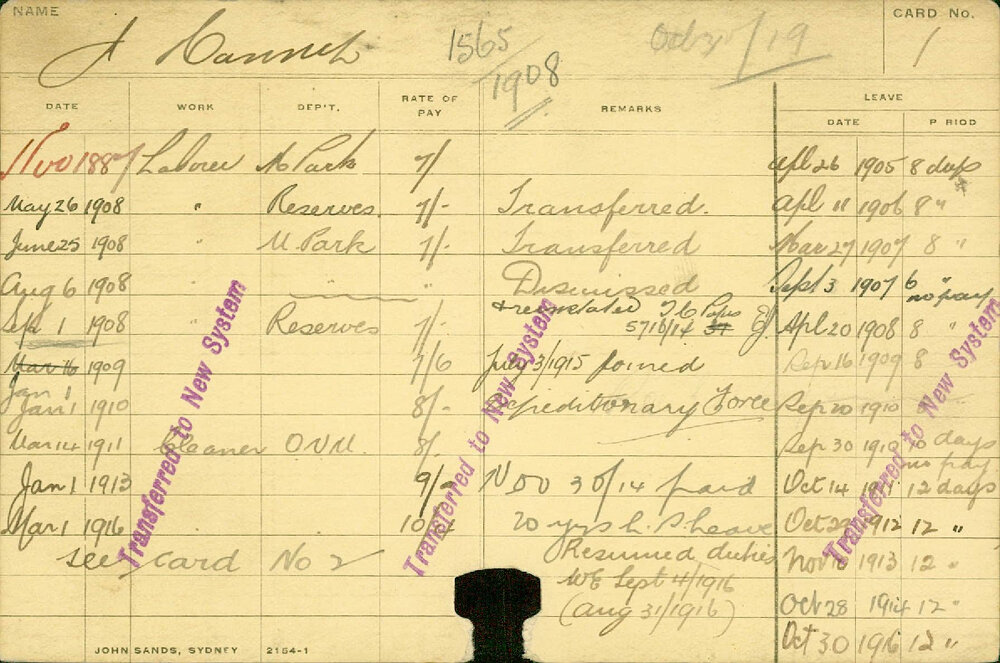 NAME
J Hannah
1565/1908
19
CARD No.
1
DATE WORK DEP'T. RATE OF PAY REMARKS LEAVE
DATE PERIOD
Nov 1887 Laborer M Park 7/ Apl 26 1905 8 days
May 26 1908 " Reserves. 7/- Transferred. Apl 11 1906 8 "
June 25 1908 " M. Park 7/- Transferred Mar 27 1907 8 "
Aug 6 1908 " " " Dismissed Sept 3 1907 6 " no pay
Sep 1 1908 " Reserves 7/- & reinstated T.C. Papers 5716/14 Apl 20 1908 8 "
Mar 16 1909 7/6 July 3/1915 joined Sep 16 1909 8
Jan 1
Jan 1 1910 8/- Expeditionary Force Sep 20 1910
Mar 14 1911 Cleaner QVM 8/- Sep 30 1910 10 days no pay
Jan 1 1913 9/- 30/14 paid Oct 14 1911 12 days
Mar 1 1916 20 yrs L. S. leave Oct 1912 12 "
see card No 2 Resumed duties Nov 1913 12 "
WE Sept 4/1916
(Aug 31/1916) Oct 28 1914 12 "
Oct 30 1916 12 "
Transferred to New System
Transferred to New System
Transferred to New System
JOHN SANDS, SYDNEY 2154-1